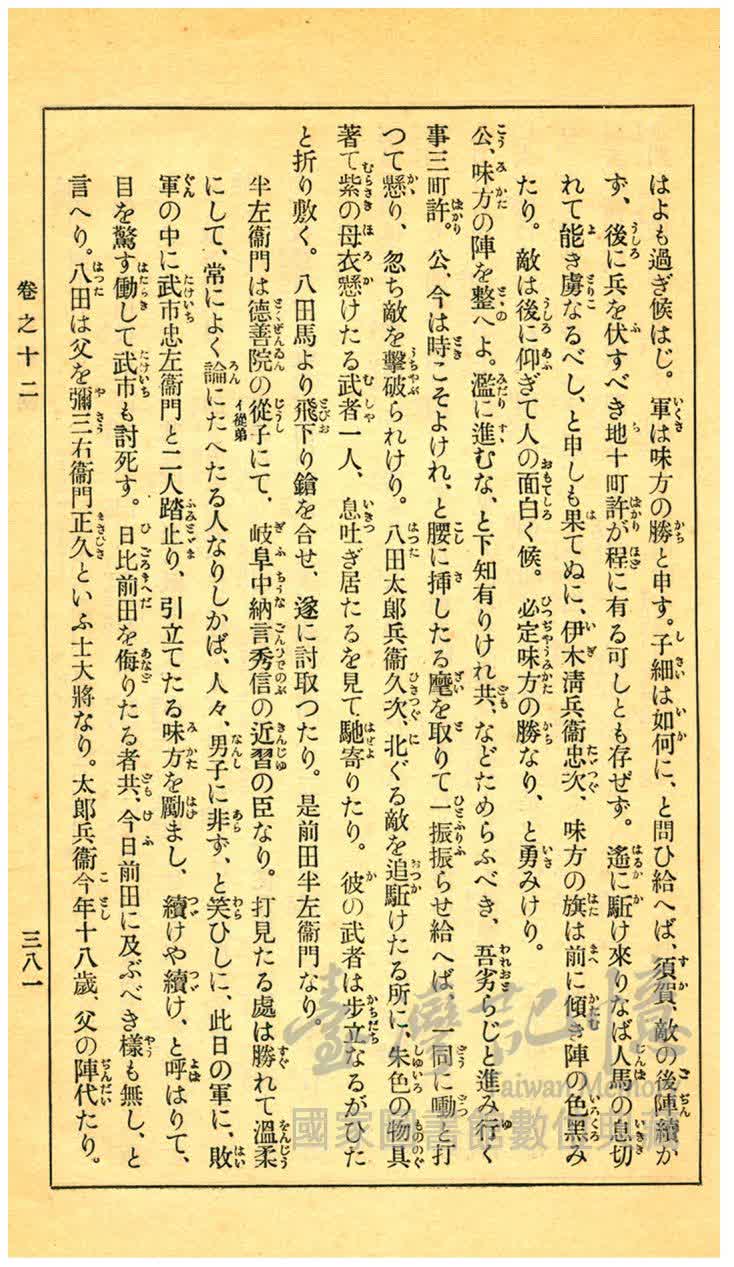 はよも過ぎ候はじ。軍は味方の勝と申す。子細は如何に、と問ひ給へば、須賀、敵の後陣續か
ず、後に兵を伏すべき地十町許が程に有る可しとも存ぜず。遙に駈け來りなば人馬の息切
れて能き虜なるべし、と申しも果てぬに、伊木淸兵衞忠次、味方の旗は前に傾き陣の色黑み
たり。敵は後に仰ぎて人の面白く候。必定味方の勝なり、と勇みけり。
公、味方の陣を整へよ。濫に進むな、と下知有りけれ共、などためらふべき、吾劣らじと進み行く
事三町許。公、今は時こそよけれ、と腰に挿したる麾を取りて一振振らせ給へば、一同に噇と打
つて懸り、忽ち敵を擊破られけり。八田太郞兵衞久次、北ぐる敵を追駈けたる所に、朱色の物具
著て紫の母衣懸けたる武者一人、息吐ぎ居たるを見て馳寄りたり。彼の武者は步立なるがひた
と折り敷く。八田馬より飛下り鎗を合せ、遂に討取つたり。是前田半左衞門なり。
半左衞門は德善院の從子にて、岐阜中納言秀信の近習の臣なり。打見たる處は勝れて溫柔
イ從弟
にして、常によく論にたへたる人なりしかば、人々、男子に非ず、と笑ひしに、此日の軍に、敗
軍の中に武市忠左衞門と二人踏止り、引立てたる味方を勵まし、續けや續け、と呼はりて、
目を驚す働して武市も討死す。日比前田を侮りたる者共、今日前田に及ぶべき樣も無し、と
言へり。八田は父を彌三右衞門正久といふ士大將なり。太郞兵衞今年十八歲、父の陣代たり。
卷之十二
三八一
臺灣記憶
Taiwan Memory
國家圖書館數位典藏